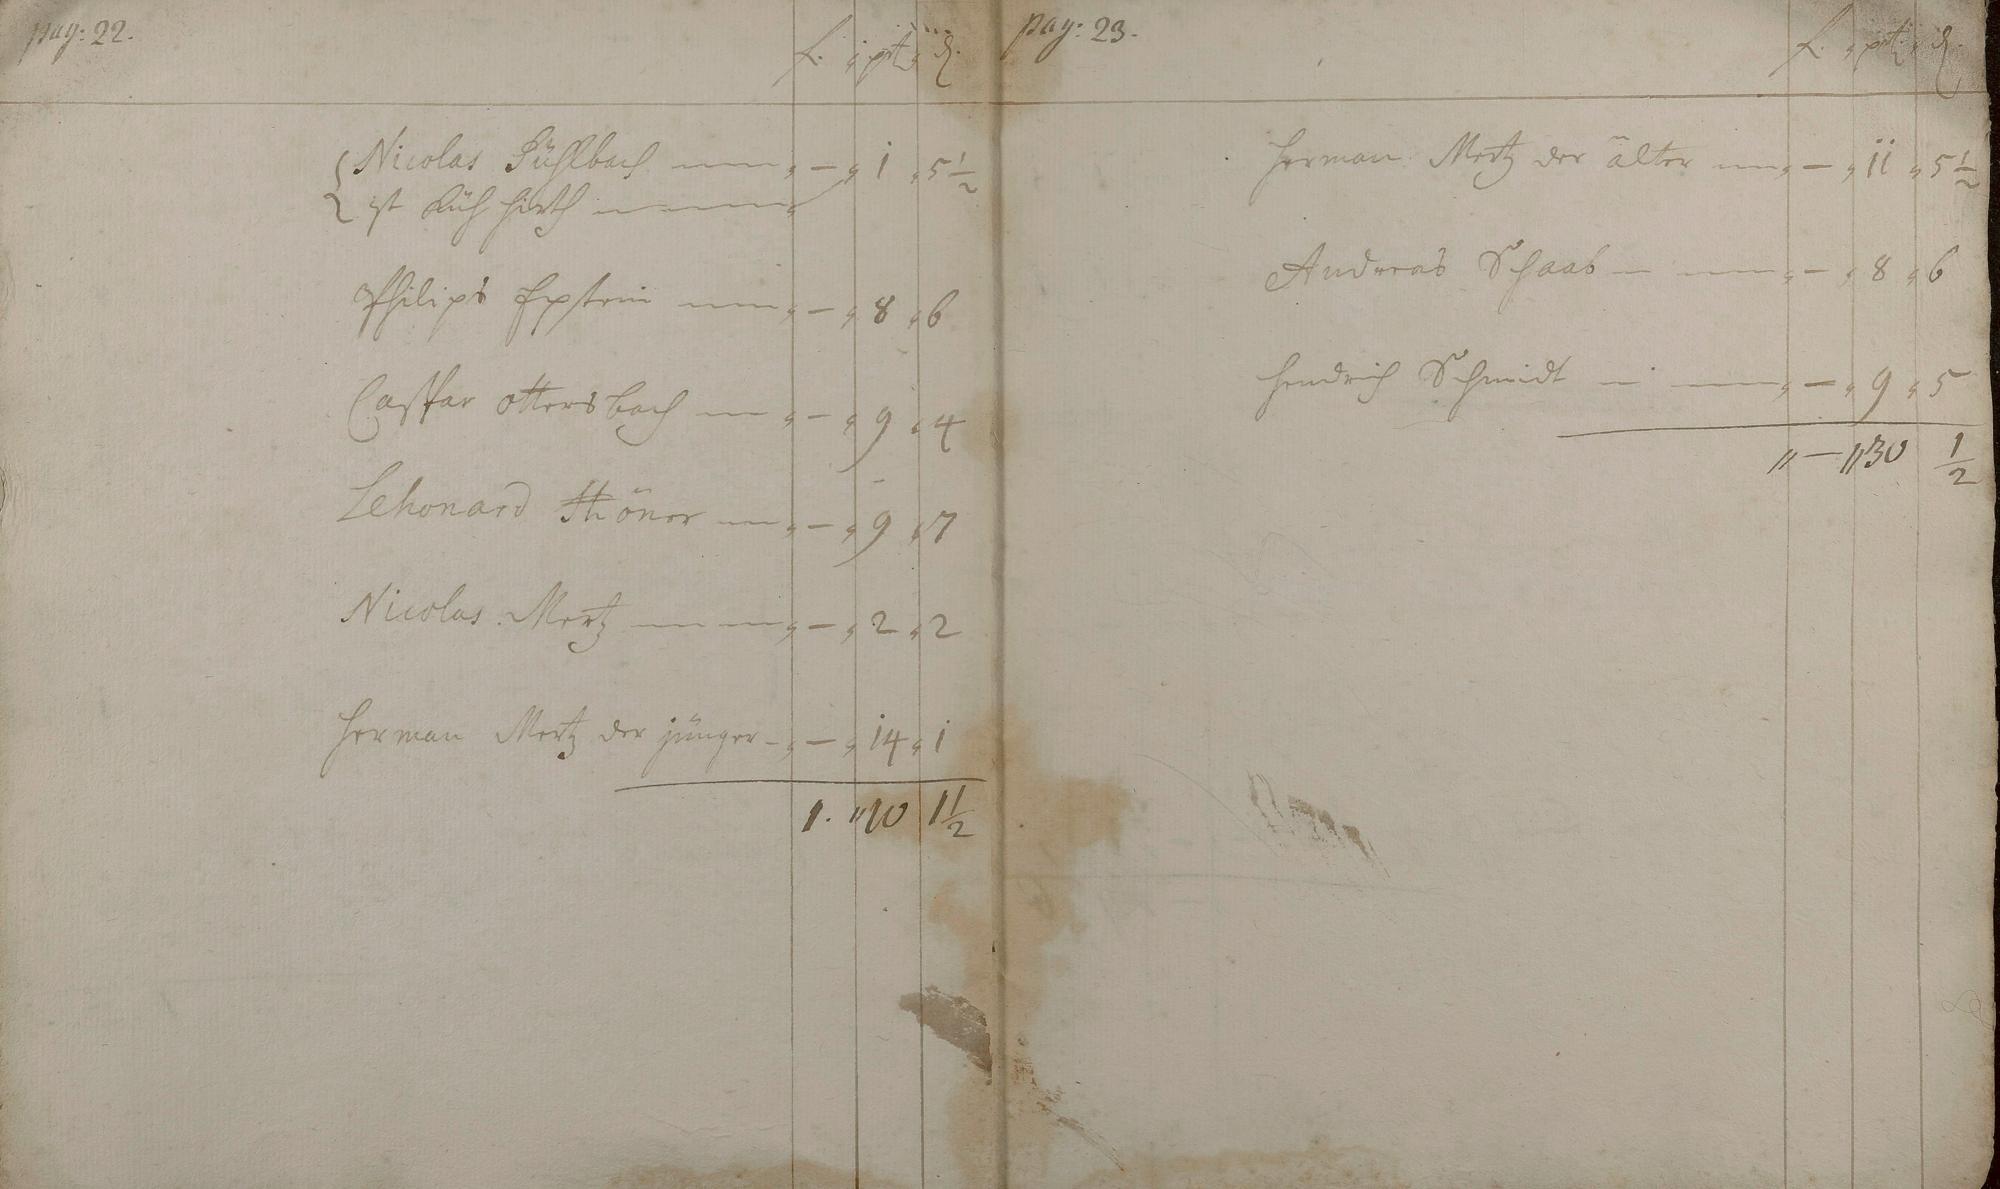 pag: 22.
f. ptz ₰.
Nicolas Pühlbach — 1 5½
ist Küh hirth
Philips Epstein — 8 6
Casspar ottersbach — 9 4
Lehonard Thöner — 9 7
Nicolas Mertz — 2 2
Herman Mertz der jünger — 14 1
1. 10 1½
pag: 23.
f. ptz ₰.
Herman Mertz der älter — 11 5½
Andreas Schaab — 8 6
Hendrich Schmidt — 9 5
— 30 ½